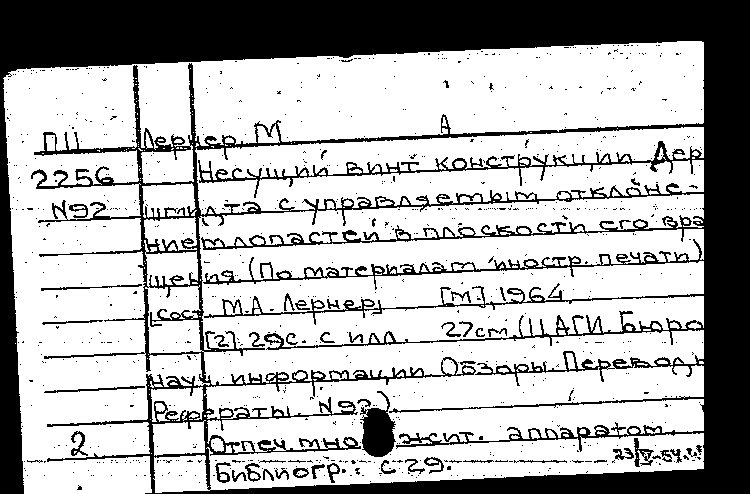 П11 Лернер, М А
2256 Несущий винт конструкции Дер
N92 шмидта с управляемым отклоне-
нием лопастей в плоскости его вра
щения (По материалам иностр. печати)
[сост. М.А. Лернер] [М], 1964.
[2], 29с. с илл. 27см. (ЦАГИ. Бюро
науч. информации. Обзоры. Переводы
Рефераты. N92).
2. Отпеч. мно жит. аппаратом.
Библиогр.: с 29.